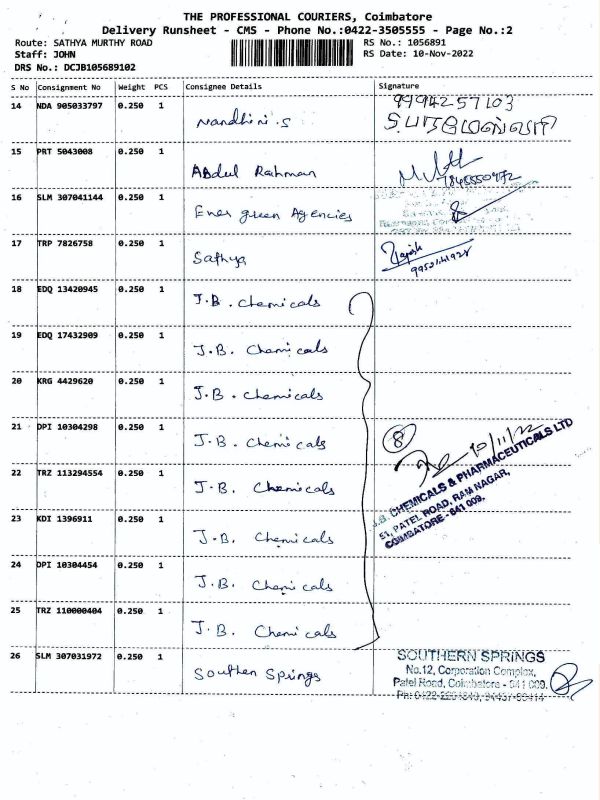 THE PROFESSIONAL COURIERS, Coimbatore
Delivery Runsheet - CMS - Phone No.:0422-3505555 - Page No.:2
Route: SATHYA MURTHY ROAD
Staff: JOHN
DRS No.: DCJB105689102
RS No.: 1056891
RS Date: 10-Nov-2022
S No Consignment No Weight PCS Consignee Details Signature
14 NDA 905033797 0.250 1 Nandhini.S 9994257103
15 PRT 5043008 0.250 1 Abdul Rahman
16 SLM 307041144 0.250 1 Ener green Agencies
17 TRP 7826758 0.250 1 Sathya Rajesh
18 EDQ 13420945 0.250 1 J.B. Chemicals
19 EDQ 17432909 0.250 1 J.B. Chemicals
20 KRG 4429620 0.250 1 J.B. Chemicals
21 DPI 10304298 0.250 1 J.B. Chemicals 8 10/11/22
22 TRZ 113294554 0.250 1 J.B. Chemicals
J.B. CHEMICALS & PHARMACEUTICALS LTD
51, PATEL ROAD, RAM NAGAR,
COIMBATORE - 641 009.
23 KDI 1396911 0.250 1 J.B. Chemicals
24 DPI 10304454 0.250 1 J.B. Chemicals
25 TRZ 110000404 0.250 1 J.B. Chemicals
26 SLM 307031972 0.250 1 Southern Springs
SOUTHERN SPRINGS
No.12, Corporation Complex,
Patel Road, Coimbatore - 641 009.